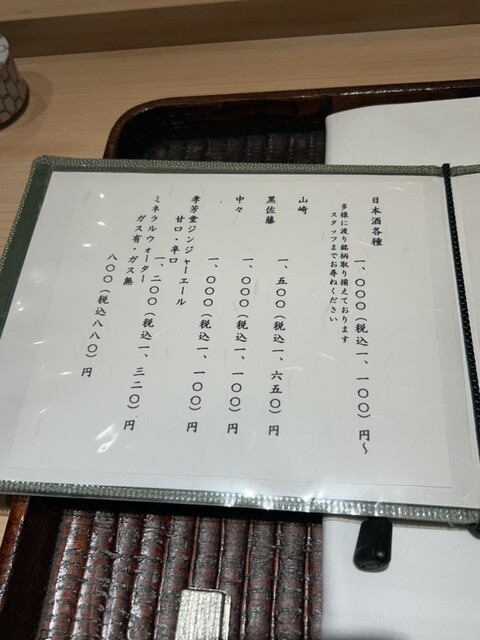 日本酒各種 一、〇〇〇(税込一、一〇〇)円〜
多様に渡り銘柄取り揃えております
スタッフまでお尋ねください
山崎 一、五〇〇(税込一、六五〇)円
黒佐藤 一、〇〇〇(税込一、一〇〇)円
中々 一、〇〇〇(税込一、一〇〇)円
孝芳堂ジンジャーエール
甘口・辛口 一、二〇〇(税込一、三二〇)円
ミネラルウォーター
ガス有・ガス無 八〇〇(税込八八〇)円